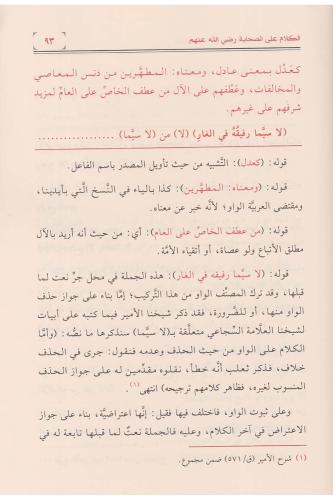 الكلام على الصحابة رضي الله عنهم
٩٣
كعَدْل بمعنى عادل، ومعناه: المطهَّرين من دنس المعاصي
والمخالفات، وعَطْفهم على الآل من عطف الخاصّ على العامّ لمزيد
شرفهم على غيرهم.
(لا سيَّما رفيقُهُ في الغارِ) (لا) من (لا سيَّما) ..................
قوله: (كعدل): التَّشبيه من حيث تأويل المصدر باسم الفاعل.
قوله: (ومعناه: المطهَّرين): كذا بالياء في النُّسخ الَّتي بأيدينا،
ومقتضى العربيَّة الواو؛ لأنَّه خبر عن معناه.
قوله: (من عطف الخاصّ على العام): أي: من حيث أنه أريد بالآل
مطلق الأتباع ولو عصاة، أو أتقياء الأمَّة.
قوله: (لا سيَّما رفيقه في الغار): هذه الجملة في محل جرّ نعت لما
قبلها، وقد ترك المصنِّف الواو من هذا التركيب؛ إمَّا بناء على جواز حذف
الواو منها، أو للضَّرورة، فقد ذكر شيخنا الأمير فيما كتبه على أبيات
لشيخنا العلَّامة السُّجاعي متعلِّقة بـ(لا سيَّما) سنذكرها ما نصُّه: (وأمَّا
الكلام على الواو من حيث الحذف وعدمه فنقول: جرى في الحذف
خلاف، فذكر ثعلب أنَّه خطأ، نقلوه مقدِّمين له على جواز الحذف
المنسوب لغيره، فظاهر كلامهم ترجيحه) انتهى(١).
وعلى ثبوت الواو، فاختلف فيها فقيل: إنَّها اعتراضيَّة، بناء على جواز
الاعتراض في آخر الكلام، وعليه فالجملة نعتٌ لما قبلها تابعة له في
(١) شرح الأمير (ق/ ٥٧١) ضمن مجموع.